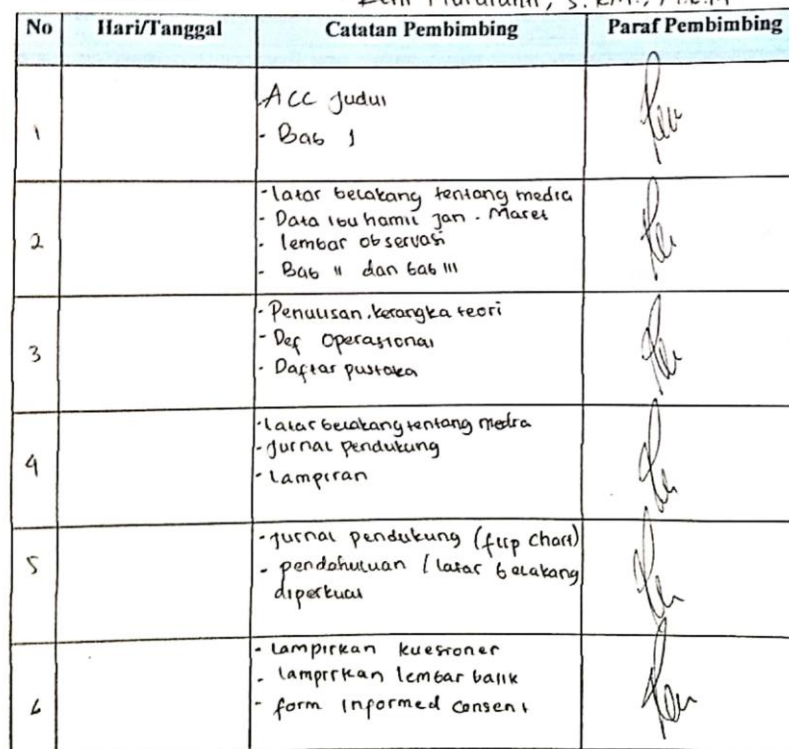 No Hari/Tanggal Catatan Pembimbing Paraf Pembimbing
1
ACC Judul
- Bab 1
2
- latar belakang tentang media
- Data ibu hamil Jan - Maret
- lembar observasi
- Bab II dan bab III
3
- Penulisan kerangka teori
- Def Operasional
- Daftar pustaka
4
- latar belakang tentang media
- Jurnal pendukung
- Lampiran
5
- Jurnal pendukung (flip chart)
- pendahuluan / latar belakang
diperkuat
6
- Lampirkan kuesioner
- lampirkan lembar balik
- form informed consent